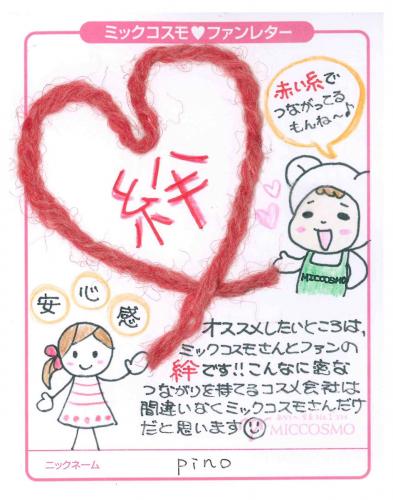 ミックコスモ♥ファンレター
赤い糸で
つながってる
もんね〜♪
絆
MICCOSMO
安心感
オススメしたいところは、
ミックコスモさんとファンの
絆です!!こんなに密な
つながりを持てるコスメ会社は
間違いなくミックコスモさんだけ
だと思います
MICCOSMO
ニックネーム
pino